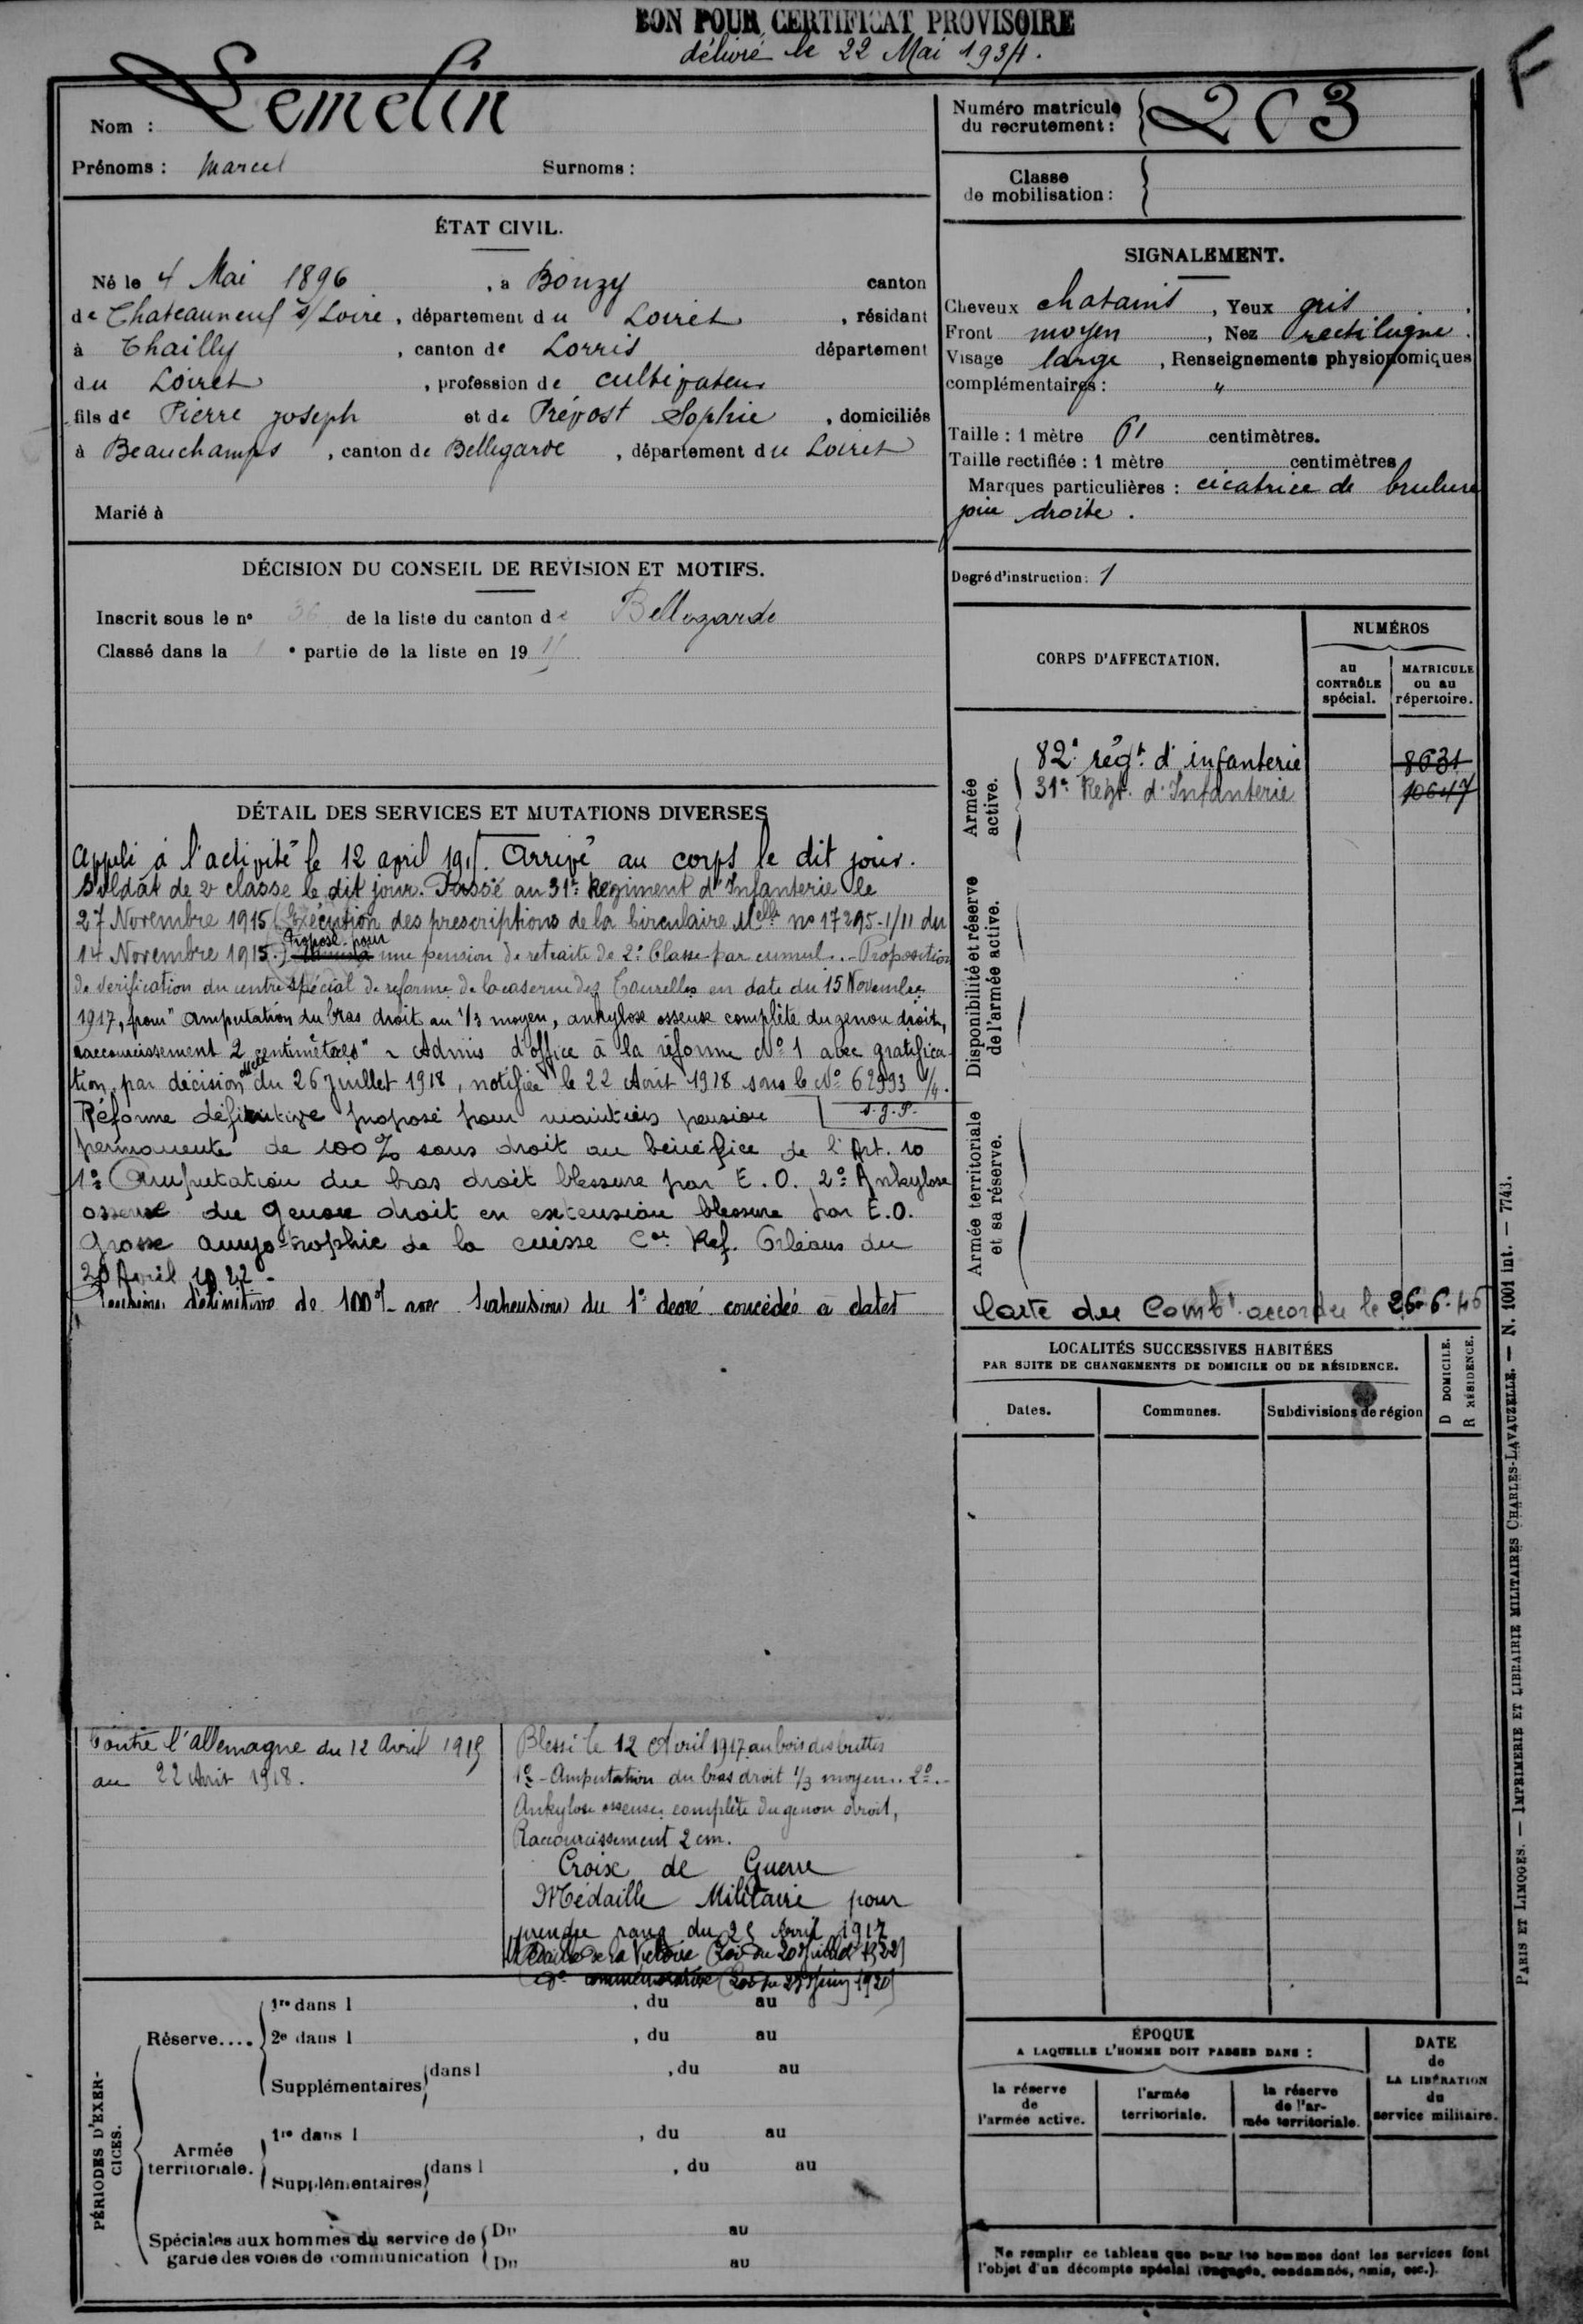 BON POUR CERTIFICAT PROVISOIRE
délivré le 22 Mai 1934.
F
Nom : Lemelin
Prénoms : Marcel Surnoms :
Numéro matricule du recrutement : 203
Classe de mobilisation :
ÉTAT CIVIL.
Né le 4 Mai 1896, à Bouzy canton
de Chateauneuf s/ Loire, département du Loiret, résidant
à Chailly, canton de Lorris département
du Loiret, profession de cultivateur
fils de Pierre Joseph et de Prévost Sophie, domiciliés
à Beauchamps, canton de Bellegarde, département du Loiret
Marié à
SIGNALEMENT.
Cheveux chatains, Yeux gris.
Front moyen, Nez rectiligne.
Visage large, Renseignements physionomiques
complémentaires : "
Taille : 1 mètre 61 centimètres.
Taille rectifiée : 1 mètre centimètres
Marques particulières : cicatrice de brulure
joue droite.
Degré d'instruction : 1
DÉCISION DU CONSEIL DE REVISION ET MOTIFS.
Inscrit sous le no 36 de la liste du canton de Bellegarde
Classé dans la 1e partie de la liste en 1915
CORPS D'AFFECTATION.
NUMÉROS
au CONTRÔLE spécial.
MATRICULE ou au répertoire.
Armée active.
82e régt d'infanterie 8631
31e Regt. d'Infanterie 10647
Disponibilité et réserve de l'armée active.
Armée territoriale et sa réserve.
Carte du Combt accordée le 26-6-46
DÉTAIL DES SERVICES ET MUTATIONS DIVERSES
Appelé à l'activité le 12 april 1915. Arrivé au corps le dit jour.
Soldat de 2e classe le dit jour. Passé au 31e Régiment d'Infanterie le
27 Novembre 1915 (Exécution des prescriptions de la Circulaire Melle no 17295-1/11 du
14 Novembre 1915.) Proposé pour une pension de retraite de 2e Classe par cumul. - Proposition
de verification du centre spécial de reforme de la caserne des Tourelles en date du 15 Novembre
1917, pour "amputation du bras droit au 1/3 moyen, ankylose osseuse complète du genou droit,
raccourcissement 2 centimètres" - Admis d'office à la réforme No 1 avec gratifica-
tion, par décision Melle du 26 Juillet 1918, notifiée le 22 Août 1918 sous le No 62993 1/4.
Réforme définitive proposé pour maintien pension
permanente de 100% sans droit au bénéfice de l'Art. 10
1o Amputation du bras droit blessure par E.O. 2o Ankylose
osseuse du genou droit en extension blessure par E.O.
Grosse amyotrophie de la cuisse Con Ref. Orléans du
20 Avril 1922 -
Pension définitive de 100% avec du 1o degré concédée à dater
Contre l'allemagne du 12 Avril 1915
au 22 Août 1918.
Blessé le 12 Avril 1917 au bois des buttes
1o - Amputation du bras droit 1/3 moyen. 2o. -
Ankylose osseuse complète du genou droit,
Raccourcissement 2 cm.
Croix de Guerre
Médaille Militaire pour
prendre rang du 25 Avril 1917
Médaille de la Victoire (Loi du 20 Juillet 1922)
do commémorative (Loi du 23 Juin 1920)
LOCALITÉS SUCCESSIVES HABITÉES
PAR SUITE DE CHANGEMENTS DE DOMICILE OU DE RÉSIDENCE.
Dates. Communes. Subdivisions de région
D DOMICILE.
R RÉSIDENCE.
PÉRIODES D'EXERCICES.
Réserve....
1re dans l , du au
2e dans l , du au
Supplémentaires dans l , du au
Armée territoriale.
1re dans l , du au
Supplémentaires dans l , du au
Spéciales aux hommes du service de garde des voies de communication
Du au
Du au
ÉPOQUE
A LAQUELLE L'HOMME DOIT PASSER DANS :
la réserve de l'armée active.
l'armée territoriale.
la réserve de l'armée territoriale.
DATE de LA LIBÉRATION du service militaire.
Ne remplir ce tableau que pour les hommes dont les services font
l'objet d'un décompte spécial (engagés, condamnés, omis, etc.).
PARIS ET LIMOGES. — IMPRIMERIE ET LIBRAIRIE MILITAIRES CHARLES-LAVAUZELLE. — N. 1001 int. — 7743.